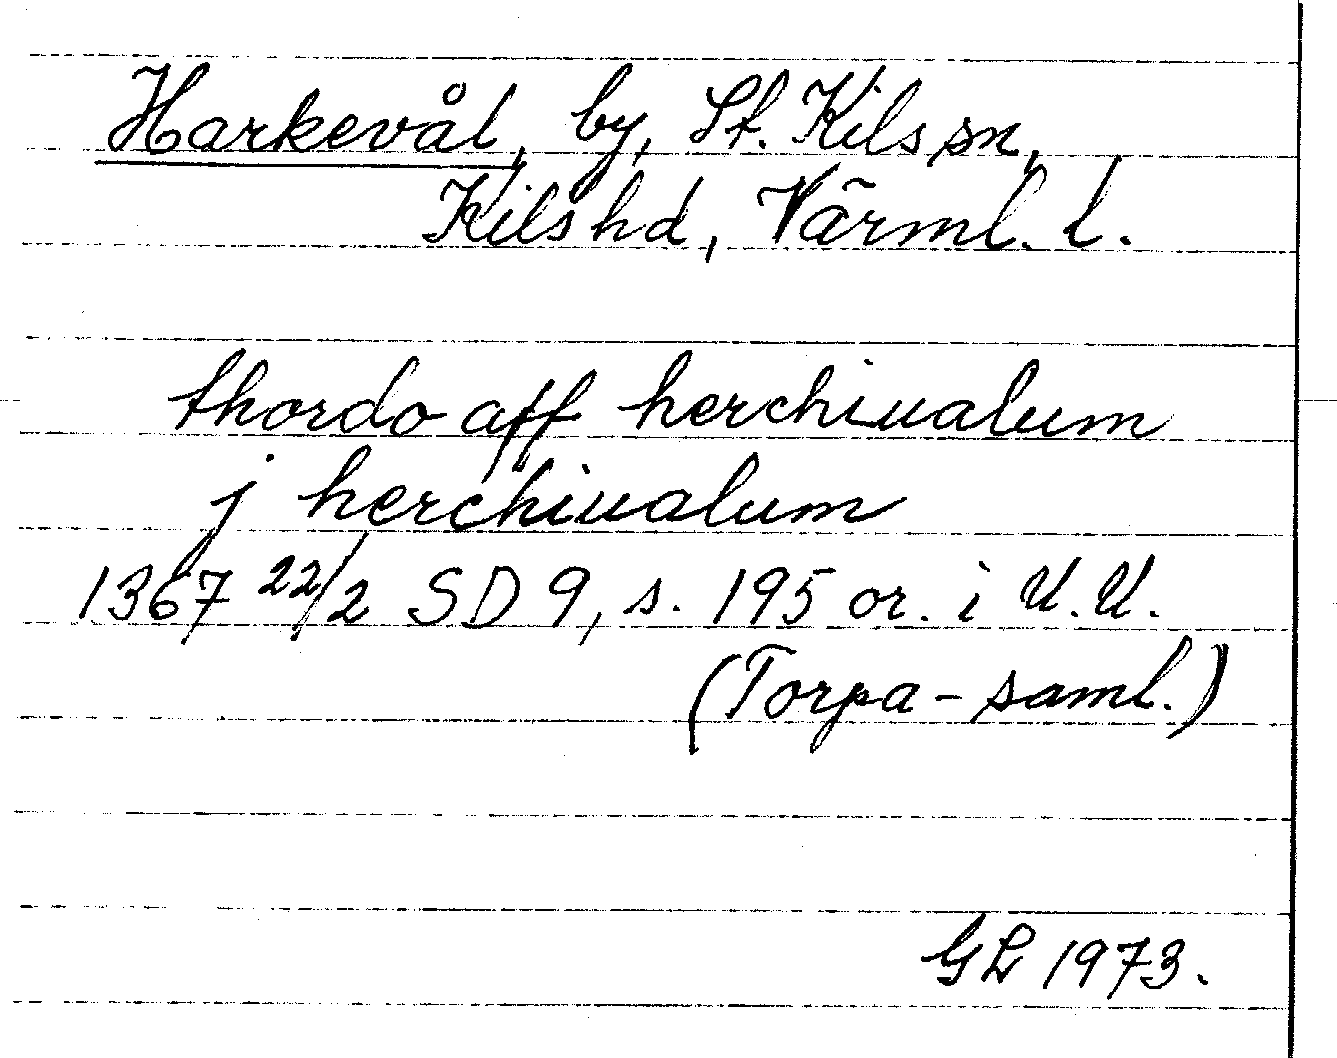 Harkevål, by, St. Kils sn,
Kils hd, Värml. l.
thordo aff herchiualum
j herchiualum
1367 22/2 SD 9, s. 195 or. i U.U.
(Torpa-saml.)
GL 1973.